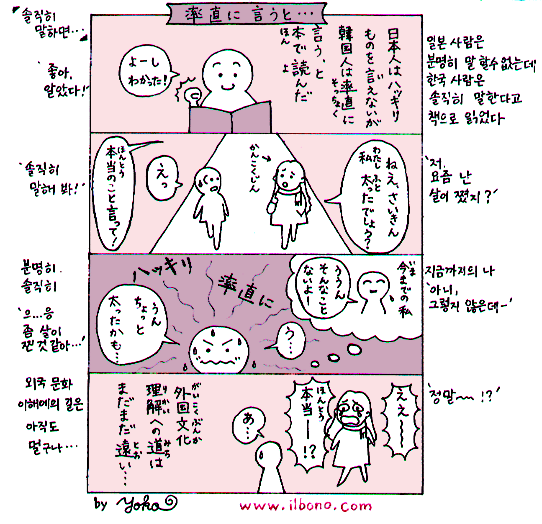 率直に言うと…
솔직히
말하면…
日本人はハッキリ
ものを言えないが
韓国人は率直に
そっちょく
言う、と
本で読んだ
ほん
よ
よーし
わかった!
'좋아,
알았다!'
일본 사람은
분명히 말 할 수 없는데
한국 사람은
솔직히 말한다고
책으로 읽었다
ねえ、さいきん
私太ったでしょう?
わたし
ふと
かんこくじん
えっ
本当のこと言って!
ほんとう
'솔직히
말해 봐!'
'저,
요즘 난
살이 쪘지?'
今までの私
いま
ううん
そんなこと
ないよー
ハッキリ
率直に
う…
うん
ちょっと
太ったかも…
분명히.
솔직히
'으…응
좀 살이
찐 것 같아…'
지금까지의 나
'아니,
그렇지 않은데~'
ええ~~
本当ー!?
ほんとう
あ…
外国文化
がいこくぶんか
理解への道は
りかい
みち
まだまだ遠い…
とお
외국 문화
이해에의 길은
아직도
멀구나…
'정말~ !?'
by Yoko
www.ilbono.com